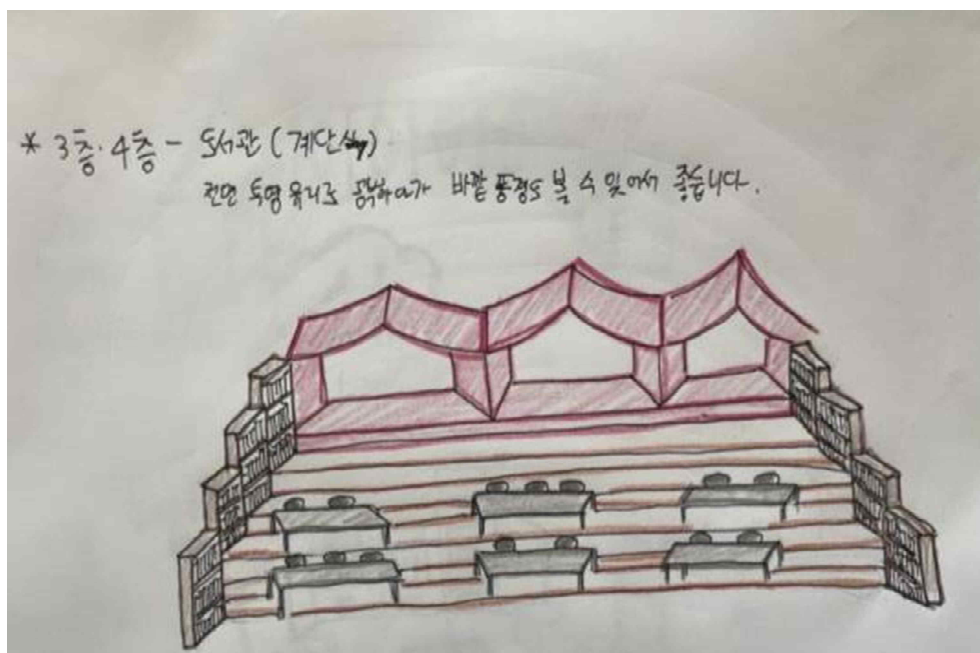 * 3층·4층 - 도서관 (계단식)
전면 투명 유리로 공부하다가 바깥 풍경도 볼 수 있어서 좋습니다.